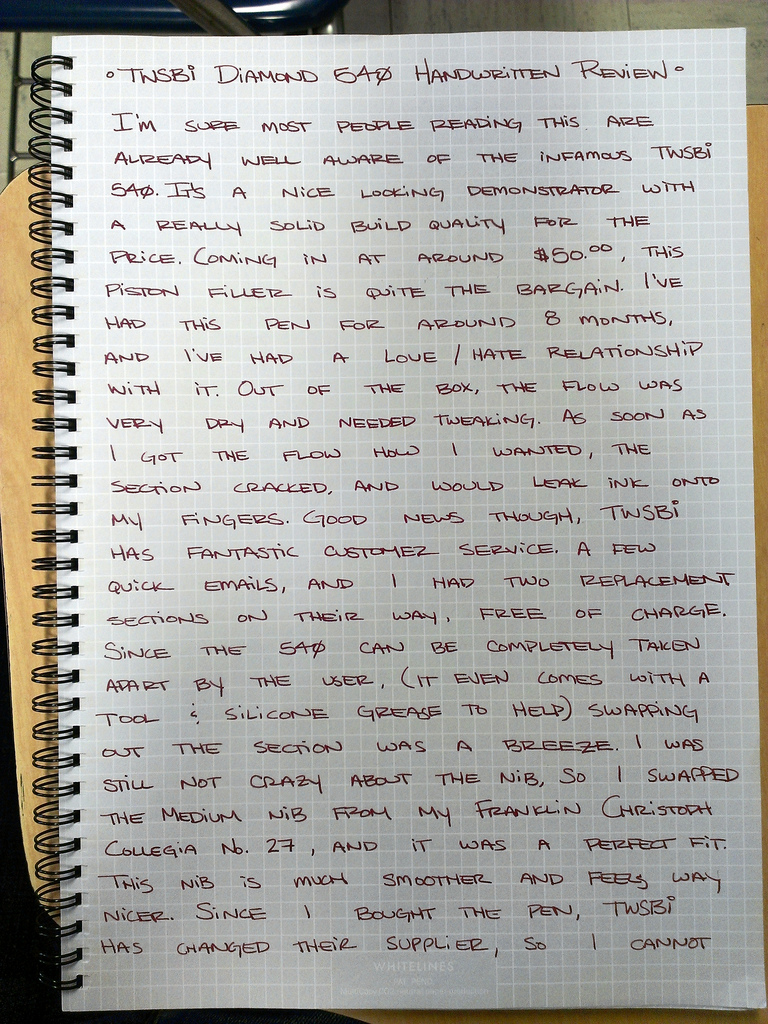 • TWSBi DIAMOND 54Ø HANDWRITTEN REVIEW •
I'M SURE MOST PEOPLE READING THIS ARE
ALREADY WELL AWARE OF THE INFAMOUS TWSBi
54Ø. IT'S A NICE LOOKING DEMONSTRATOR WITH
A REALLY SOLID BUILD QUALITY FOR THE
PRICE. COMING IN AT AROUND $50.00, THIS
PISTON FILLER IS QUITE THE BARGAIN. I'VE
HAD THIS PEN FOR AROUND 8 MONTHS,
AND I'VE HAD A LOVE / HATE RELATIONSHIP
WITH IT. OUT OF THE BOX, THE FLOW WAS
VERY DRY AND NEEDED TWEAKING. AS SOON AS
I GOT THE FLOW HOW I WANTED, THE
SECTION CRACKED, AND WOULD LEAK INK ONTO
MY FINGERS. GOOD NEWS THOUGH, TWSBi
HAS FANTASTIC CUSTOMER SERVICE. A FEW
QUICK EMAILS, AND I HAD TWO REPLACEMENT
SECTIONS ON THEIR WAY, FREE OF CHARGE.
SINCE THE 54Ø CAN BE COMPLETELY TAKEN
APART BY THE USER, (IT EVEN COMES WITH A
TOOL & SILICONE GREASE TO HELP) SWAPPING
OUT THE SECTION WAS A BREEZE. I WAS
STILL NOT CRAZY ABOUT THE NIB, SO I SWAPPED
THE MEDIUM NIB FROM MY FRANKLIN CHRISTOPH
COLLEGIA NO. 27, AND IT WAS A PERFECT FIT.
THIS NIB IS MUCH SMOOTHER AND FEELS WAY
NICER. SINCE I BOUGHT THE PEN, TWSBi
HAS CHANGED THEIR SUPPLIER, SO I CANNOT
WHITELINES